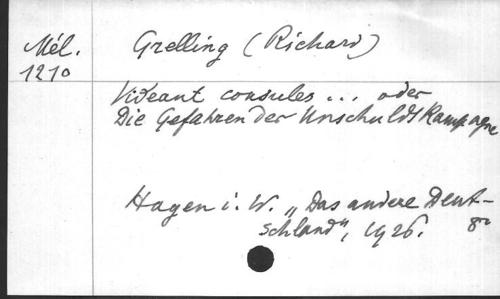 Mél.
1210
Grelling (Richard)
Videant consules ... oder
Die Gefahren der Unschulds Kampagne
Hagen i. W. „Das andere Deut-
schland", 1926. 8°